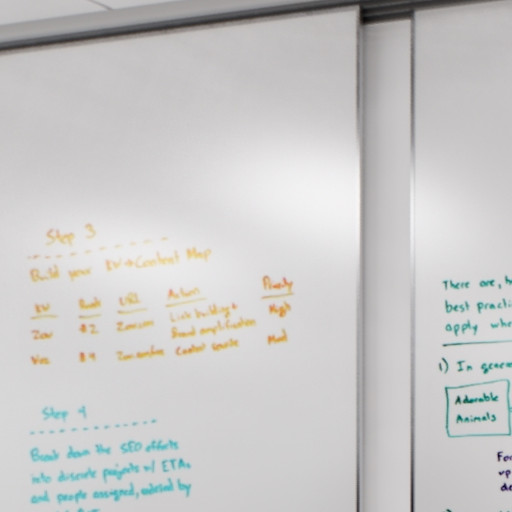 Step 3
Build your KW → Content Map
KW Rank URL Action Priority
#2 Link building + High
Brand amplification
#4 Content Med
Step 4
Break down the SEO efforts
into discrete projects w/ ETAs
and people assigned, ordered by
There are, h
best practi
apply whe
1) In gener
Adorable
Animals
For
up
de